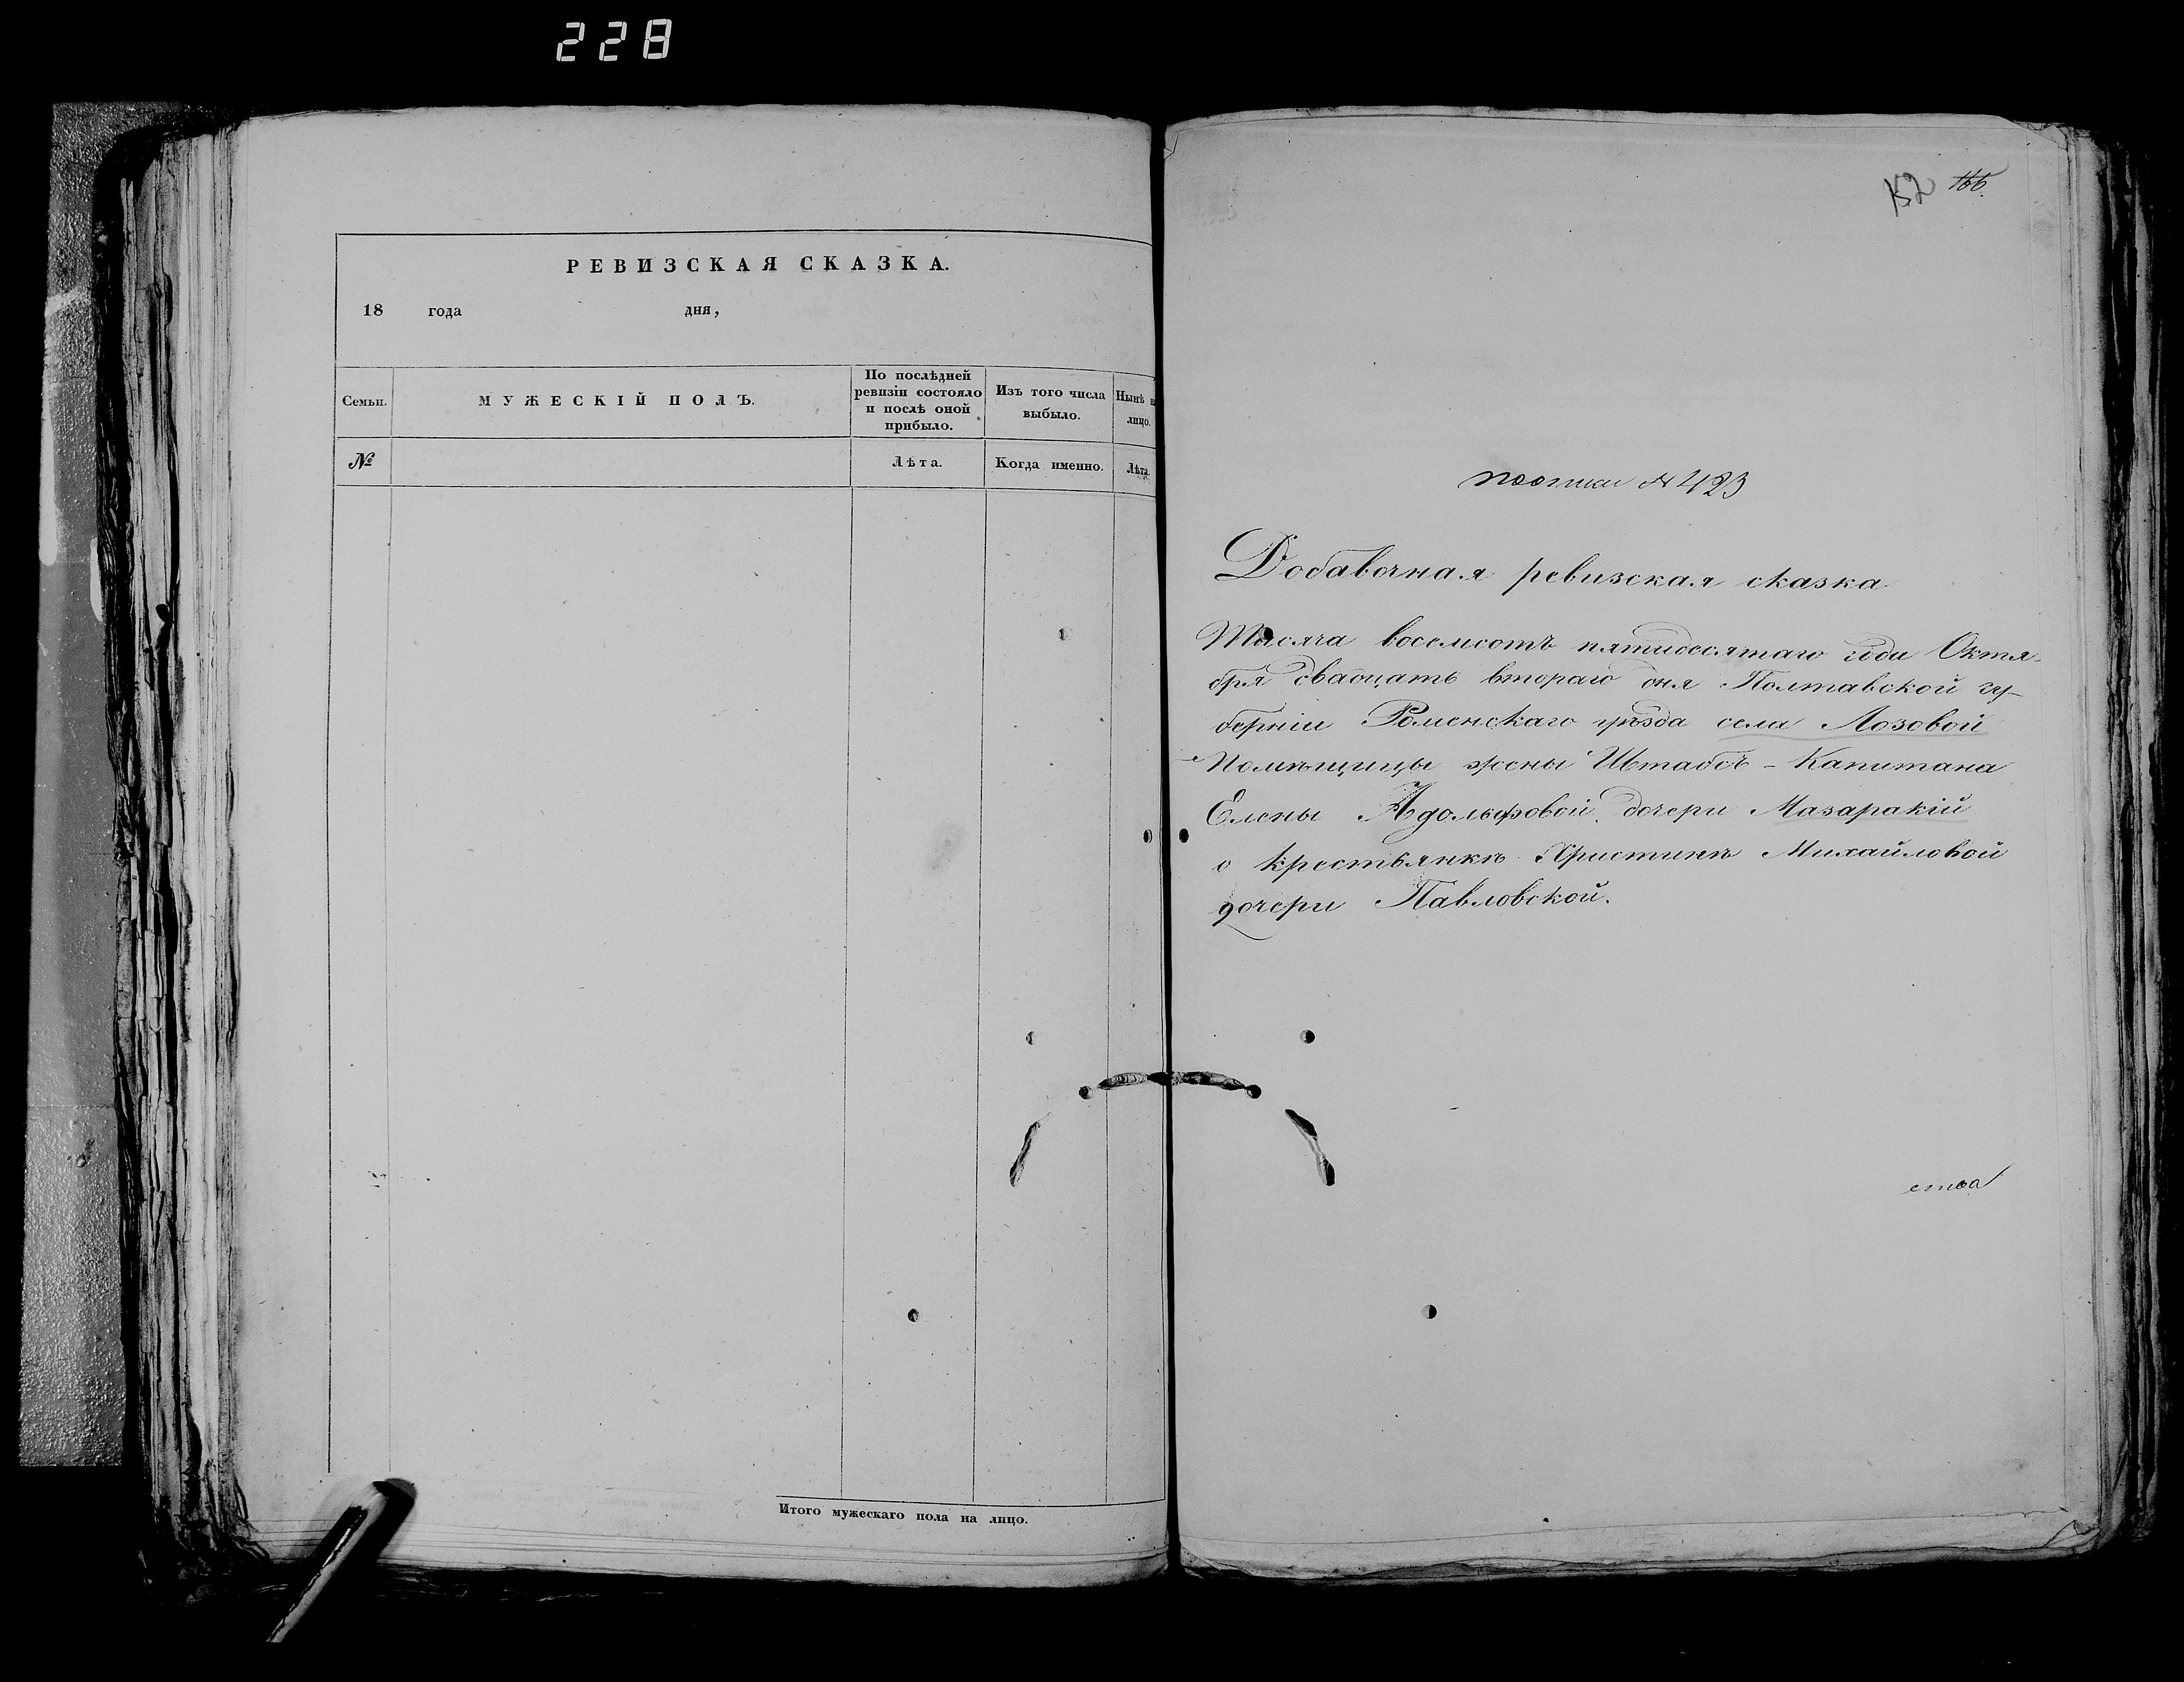 228
РЕВИЗСКАЯ СКАЗКА.
18 года дня,
Семьи.
МУЖЕСКІЙ ПОЛЪ.
По послѣдней
ревизіи состояло
и послѣ оной
прибыло.
Изъ того числа
выбыло.
Нынѣ н
лицо.
№
Лѣта.
Когда именно.
Лѣта.
Итого мужескаго пола на лицо.
152 166.
№ 423
Добавочная ревизская сказка
Тысяча восемсотъ пятидесятаго года Октя-
бря двадцать втораго дня Полтавской гу-
берніи Роменскаго уѣзда села Лозовой
Помѣщицы жены Штабсъ-Капитана
Елены Адольфовой дочери Мазаракій
о крестьянкѣ Христинѣ Михайловой
дочери Павловской.